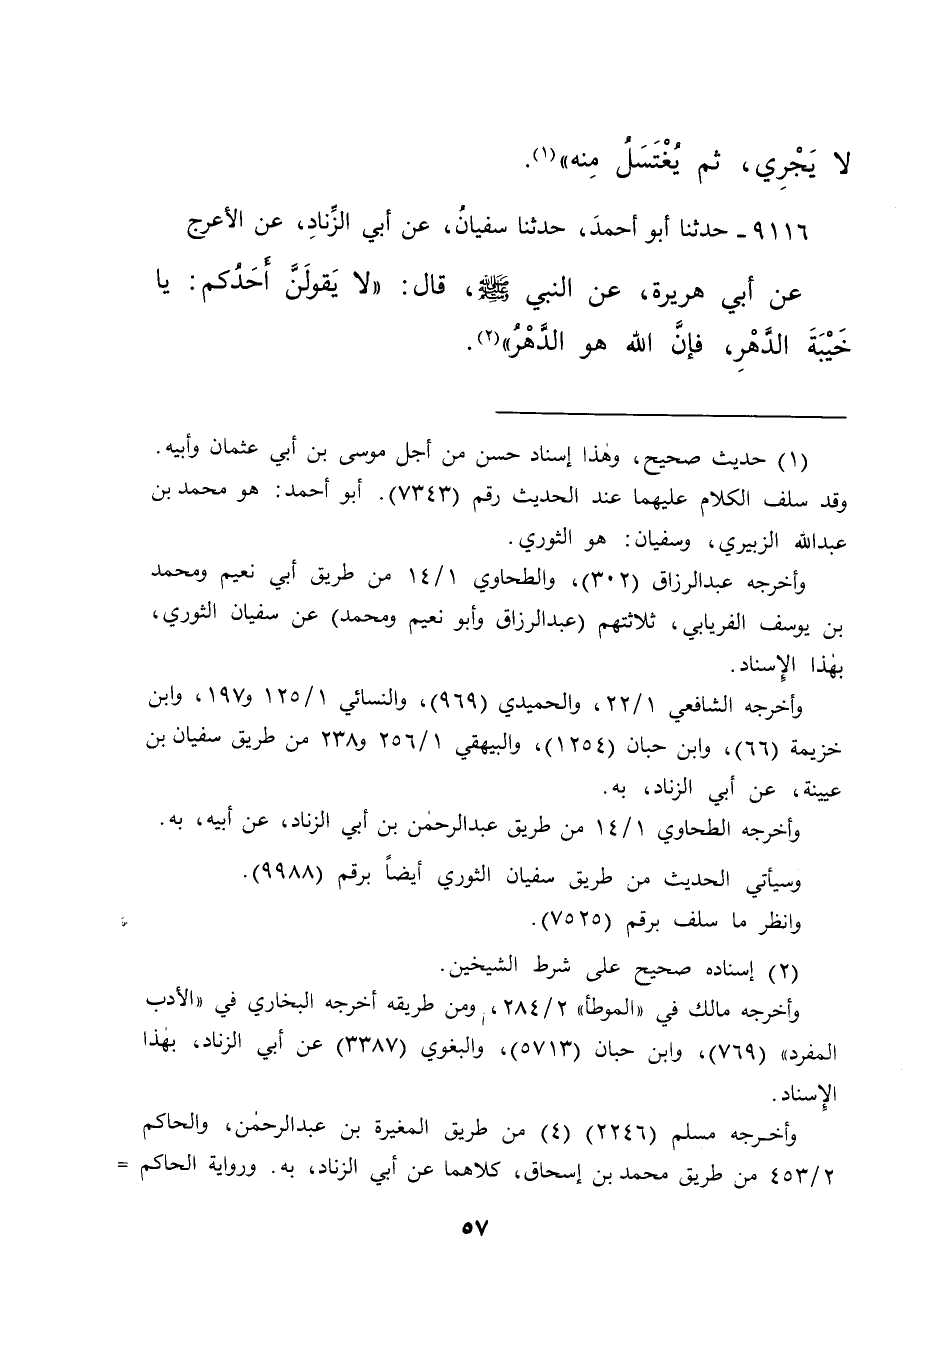 لا يَجْرِي، ثم يُغْتَسَلُ مِنه»(١).
٩١١٦ـ حدثنا أبو أحمدَ، حدثنا سفيانُ، عن أبي الزِّنادِ، عن الأعرج
عن أبي هريرة، عن النبي ﷺ، قال: «لا يَقولَنَّ أَحَدُكم: يا
خَيْبَةَ الدَّهْرِ، فإنَّ الله هو الدَّهْرُ»(٢).
(١) حديث صحيح، وهٰذا إسناد حسن من أجل موسى بن أبي عثمان وأبيه.
وقد سلف الكلام عليهما عند الحديث رقم (٧٣٤٣). أبو أحمد: هو محمد بن
عبدالله الزبيري، وسفيان: هو الثوري.
وأخرجه عبدالرزاق (٣٠٢)، والطحاوي ١/١٤ من طريق أبي نعيم ومحمد
بن يوسف الفريابي، ثلاثتهم (عبدالرزاق وأبو نعيم ومحمد) عن سفيان الثوري،
بهٰذا الإسناد.
وأخرجه الشافعي ١/٢٢، والحميدي (٩٦٩)، والنسائي ١/١٢٥ و١٩٧، وابن
خزيمة (٦٦)، وابن حبان (١٢٥٤)، والبيهقي ١/٢٥٦ و٢٣٨ من طريق سفيان بن
عيينة، عن أبي الزناد، به.
وأخرجه الطحاوي ١/١٤ من طريق عبدالرحمٰن بن أبي الزناد، عن أبيه، به.
وسيأتي الحديث من طريق سفيان الثوري أيضاً برقم (٩٩٨٨).
وانظر ما سلف برقم (٧٥٢٥).
(٢) إسناده صحيح على شرط الشيخين.
وأخرجه مالك في «الموطأ» ٢/٢٨٤، ومن طريقه أخرجه البخاري في «الأدب
المفرد» (٧٦٩)، وابن حبان (٥٧١٣)، والبغوي (٣٣٨٧) عن أبي الزناد، بهٰذا
الإسناد.
وأخـرجه مسلم (٢٢٤٦) (٤) من طريق المغيرة بن عبدالرحمٰن، والحاكم
٢/٤٥٣ من طريق محمد بن إسحاق، كلاهما عن أبي الزناد، به. ورواية الحاكم =
٥٧